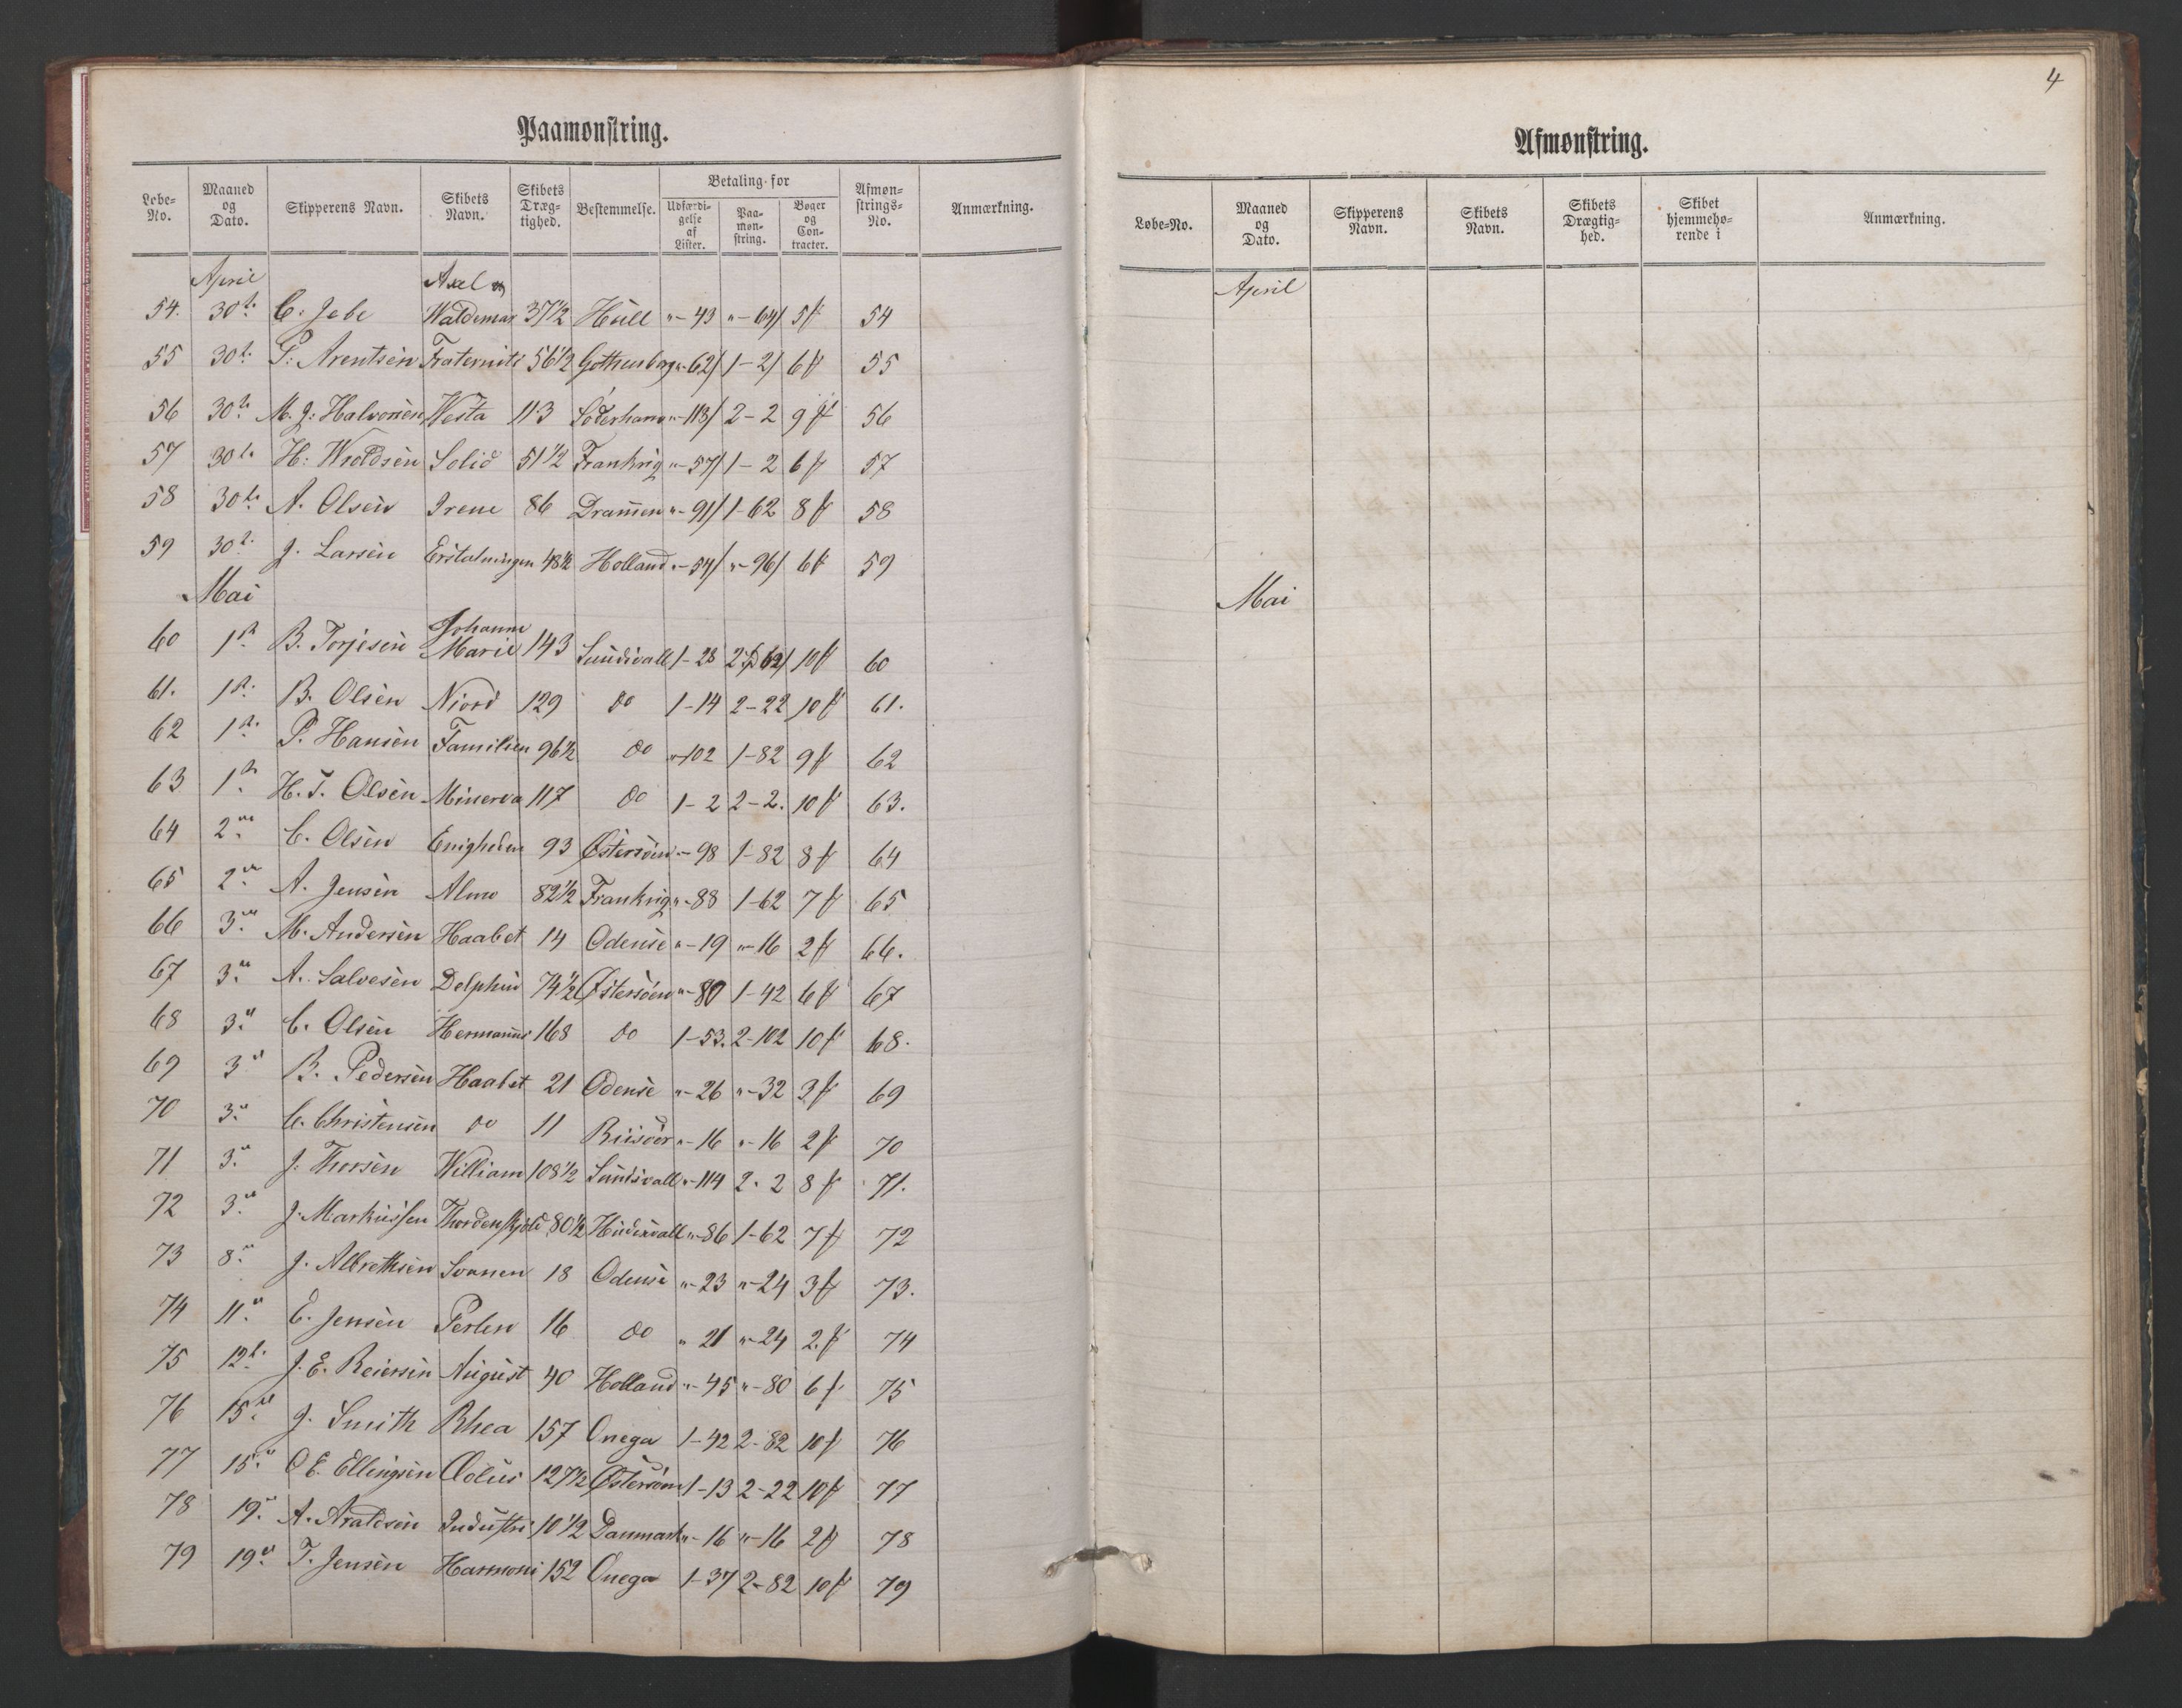 Paamønstring.
Løbe-No. Maaned og Dato. Skipperens Navn. Skibets Navn. Skibets Drægtighed. Bestemmelse. Betaling for Udfærdigelse af Lister. Paamønstring. Bøger og Contracter. Afmønstrings-No. Anmærkning.
April
54. 30t. C. Jebe Axel Waldemar 37 1/2 Hull "-43 "-64 5 54
55 30t. P. Arentsen Fraternité 56 1/2 Gothenborg "-62 1-2 6 55
56 30t. M. J. Halvorsen Vesta 113 Söderhamn "-113 2-2 9 56
57 30t. H. Wroldsen Solid 51 1/2 Frankrig "-57 1-2 6 57
58 30t. A. Olsen Irene 86 Drammen "-91 1-62 8 58
59 30t. J. Larsen Erstatningen 48 1/2 Holland "-54 "-96 6 59
Mai
60 1st. B. Torjesen Johanne Marie 143 Sundsvall 1-28 2-62 10 60
61. 1st. B. Olsen Niord 129 do 1-14 2-22 10 61.
62 1st. P. Hansen Familien 96 1/2 do "-102 1-82 9 62
63 1st. H. T. Olsen Minerva 117 do 1-2 2-2. 10 63.
64 2. C. Olsen Enigheden 93 Østersøen "-98 1-82 8 64
65 2. A. Jensen Alma 82 1/2 Frankrig "-88 1-62 7 65
66 3. M. Andersen Haabet 14 Odense "-19 "-16 2 66.
67 3. A. Salvesen Delphin 74 1/2 Østersøen "-80 1-42 6 67
68 3. C. Olsen Hermanus 168 do 1-53. 2-102 10 68.
69 3 B. Pedersen Haabet 21 Odense "-26 "-32 3 69
70 3. C. Christensen do 11 Riisöer "-16 "-16 2 70
71 3. J. Thorsen William 108 1/2 Sundsvall "-114 2-2 8 71.
72 3. J. Markussen Thordenskjold 80 1/2 Hudiksvall "-86 1-62 7 72
73 8. J. Albrethsen Svanen 18 Odense "-23 "-24 3 73.
74 11. E. Jensen Perlen 16 do " 21 "-24 2. 74
75 12t. J. E. Reiersen August 40 Holland "-45 "-80 6 75
76 15. J. Smith Rhea 157 Onega 1-42 2-82 10 76
77 15. O E. Ellingsen Æolus 127 1/2 Østersøen 1-13 2-22 10 77
78 19. A. Araldsen Industri 10 1/2 Danmark "-16 "-16 2 78
79 19. T. Jensen Harmoni 152 Onega 1-37 2-82 10 79
4
Afmønstring.
Løbe-No. Maaned og Dato. Skipperens Navn. Skibets Navn. Skibets Drægtighed. Skibet hjemmehørende i Anmærkning.
April
Mai